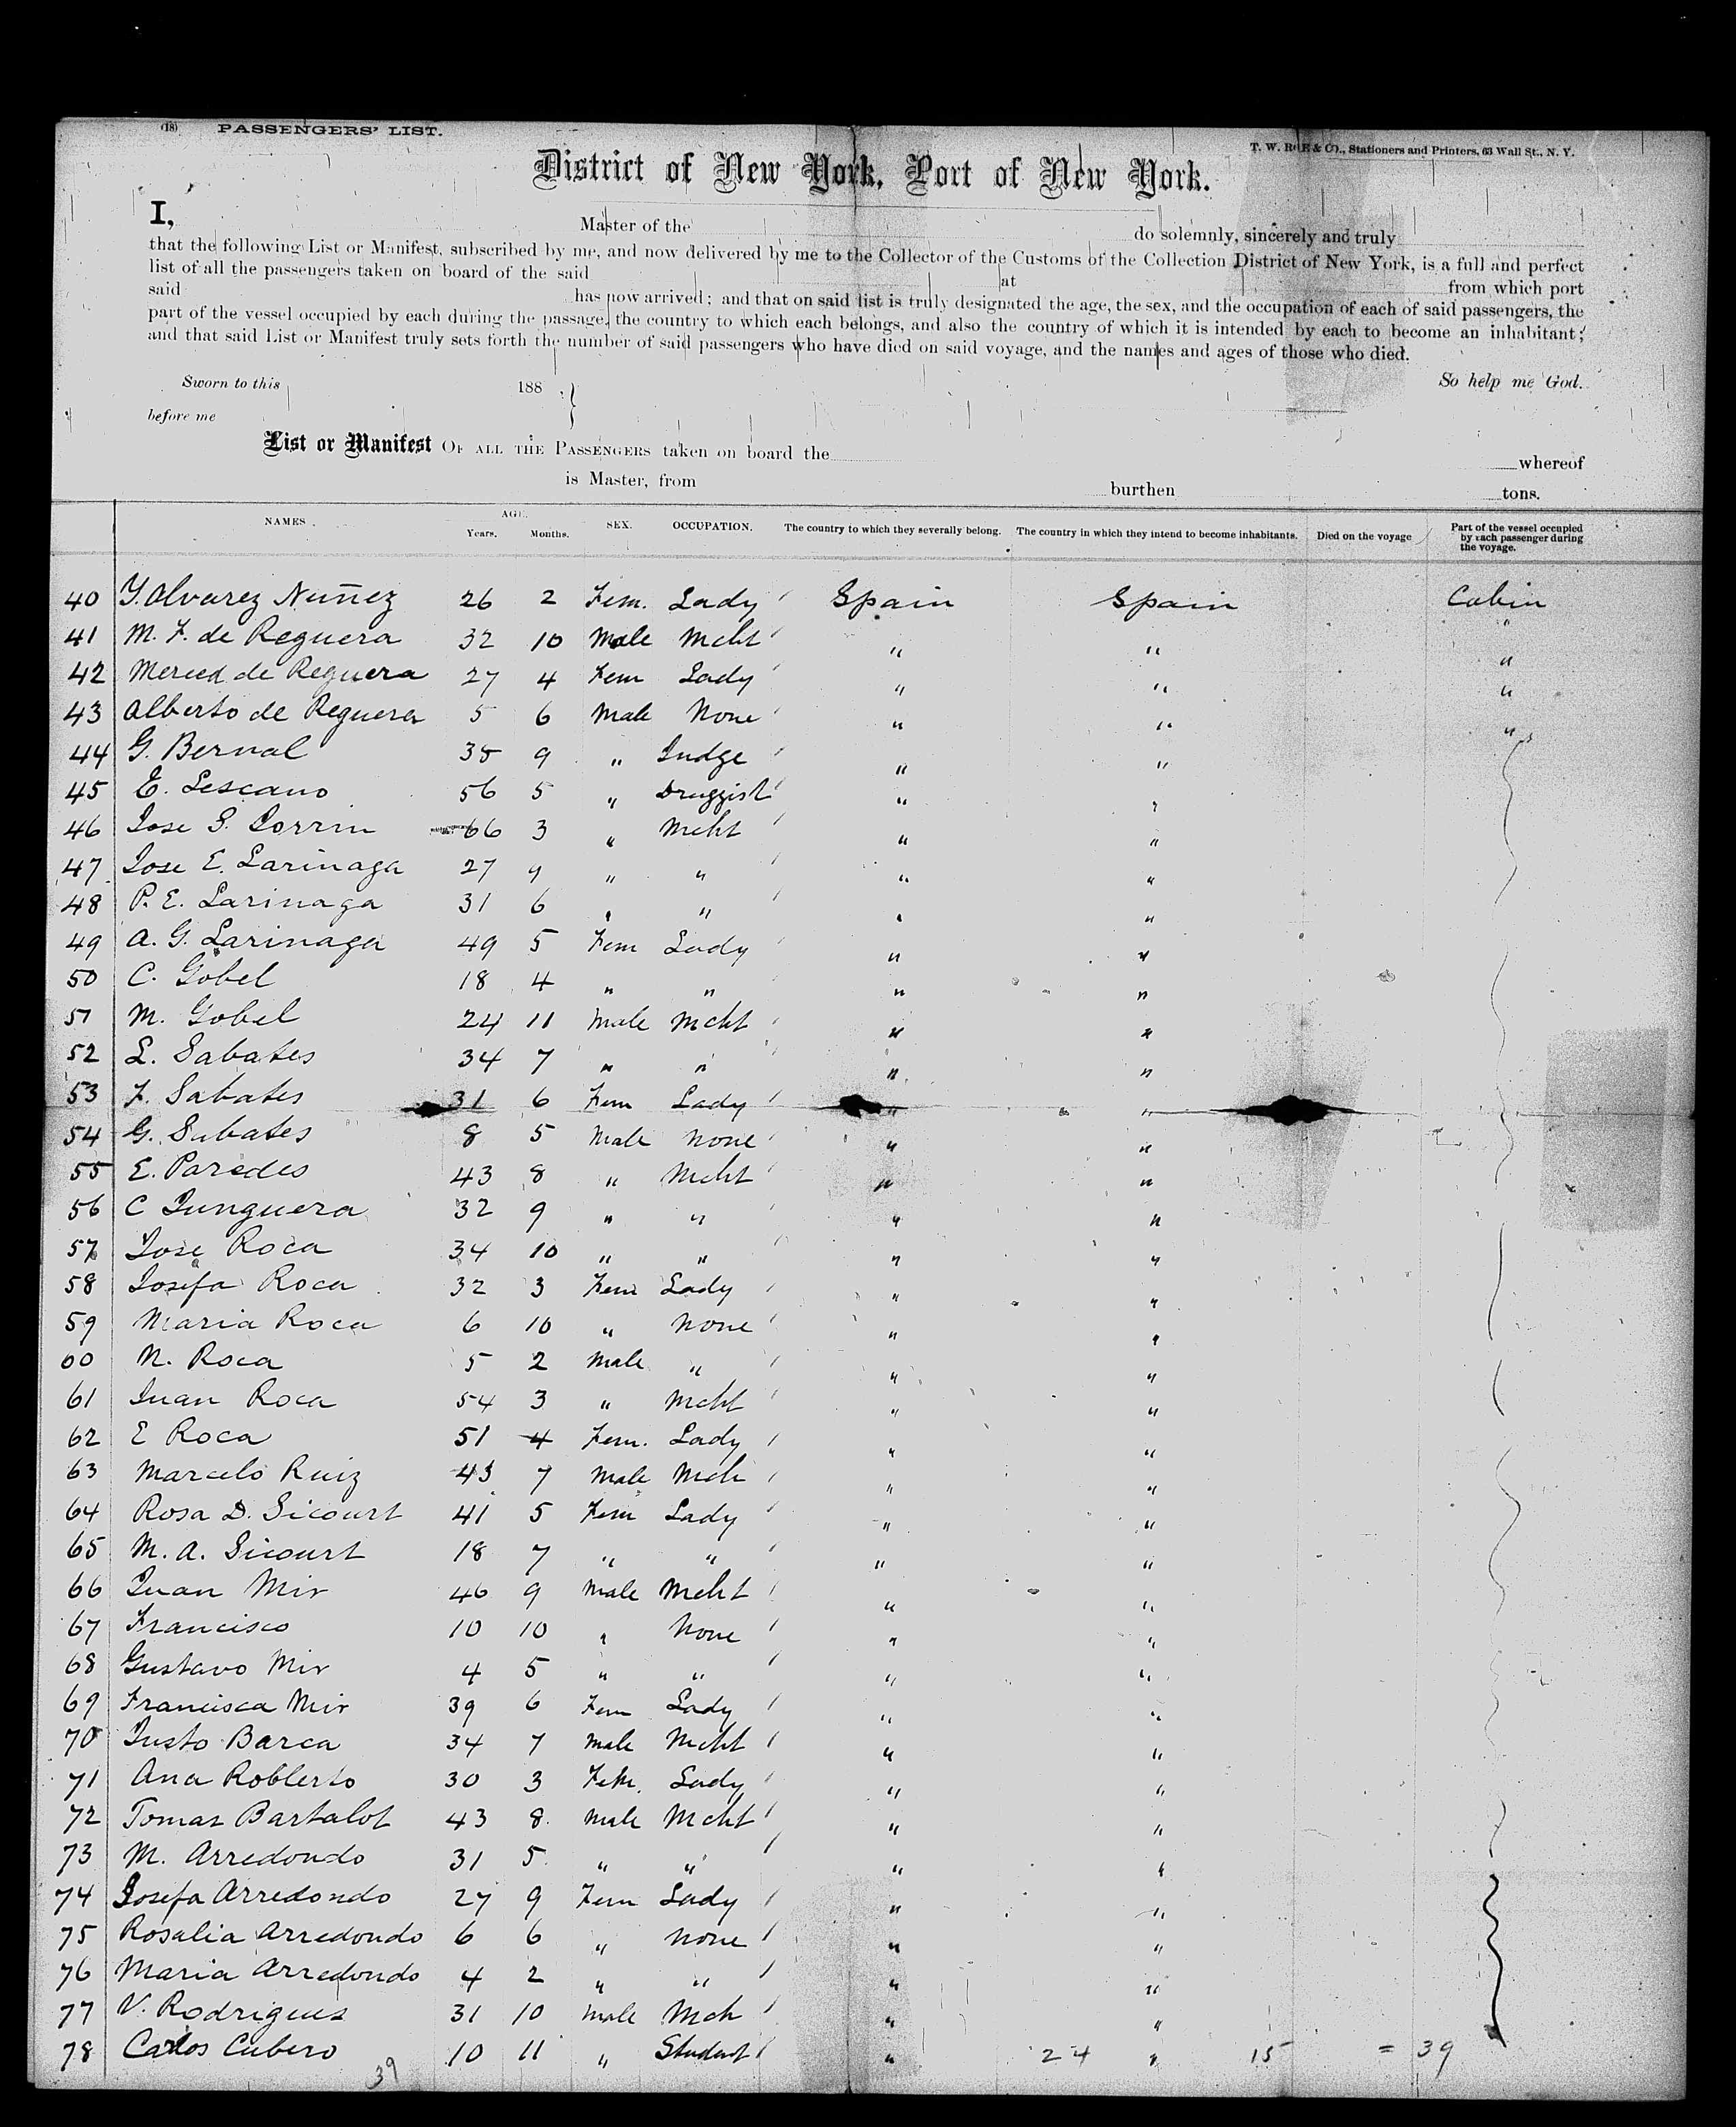 (18) PASSENGERS' LIST.
T. W. ROE & CO., Stationers and Printers, 63 Wall St., N. Y.
District of New York, Port of New York.
I, Master of the do solemnly, sincerely and truly
that the following List or Manifest, subscribed by me, and now delivered by me to the Collector of the Customs of the Collection District of New York, is a full and perfect
list of all the passengers taken on board of the said at from which port
said has now arrived; and that on said list is truly designated the age, the sex, and the occupation of each of said passengers, the
part of the vessel occupied by each during the passage, the country to which each belongs, and also the country of which it is intended by each to become an inhabitant;
and that said List or Manifest truly sets forth the number of said passengers who have died on said voyage, and the names and ages of those who died.
Sworn to this 188 So help me God.
before me
List or Manifest OF ALL THE PASSENGERS taken on board the whereof
is Master, from burthen tons.
NAMES. AGE. Years. Months. SEX. OCCUPATION. The country to which they severally belong. The country in which they intend to become inhabitants. Died on the voyage Part of the vessel occupied by each passenger during the voyage.
40 Y. Alvarez Nuñez 26 2 Fem. Lady Spain Spain Cabin
41 M. F. de Reguera 32 10 Male Mcht " " "
42 Merced de Reguera 27 4 Fem Lady " " "
43 Alberto de Reguera 5 6 Male None " " "
44 G. Bernal 38 9 " Judge " " "
45 E. Lescano 56 5 " Druggist " "
46 Jose S. Lorrin 66 3 " Mcht " "
47 Jose E. Larinaga 27 9 " " " "
48 P. E. Larinaga 31 6 " " " "
49 A. G. Larinaga 49 5 Fem Lady " "
50 C. Gobel 18 4 " " " "
51 M. Gobel 24 11 Male Mcht " "
52 L. Sabates 34 7 " " " "
53 F. Sabates 31 6 Fem Lady " "
54 G. Sabates 8 5 Male None " "
55 E. Paredes 43 8 " Mcht " "
56 C Junguera 32 9 " " " "
57 Jose Roca 34 10 " " " "
58 Josefa Roca 32 3 Fem Lady " "
59 Maria Roca 6 10 " None " "
60 N. Roca 5 2 Male " " "
61 Juan Roca 54 3 " Mcht " "
62 E Roca 51 4 Fem. Lady " "
63 Marcelo Ruiz 43 7 Male Mch " "
64 Rosa D. Sicourt 41 5 Fem Lady " "
65 M. A. Sicourt 18 7 " " " "
66 Juan Mir 46 9 Male Mcht " "
67 Francisco 10 10 " None " "
68 Gustavo Mir 4 5 " " " "
69 Francisca Mir 39 6 Fem Lady " "
70 Justo Barca 34 7 Male Mcht " "
71 Ana Roblerto 30 3 Fem. Lady " "
72 Tomas Bartalot 43 8 Male Mcht " "
73 M. Arredondo 31 5 " " " "
74 Josefa Arredondo 27 9 Fem Lady " "
75 Rosalia Arredondo 6 6 " None " "
76 Maria Arredondo 4 2 " " " "
77 V. Rodrigues 31 10 Male Mch " "
78 Carlos Cubero 10 11 " Student " "
39 24 15 = 39